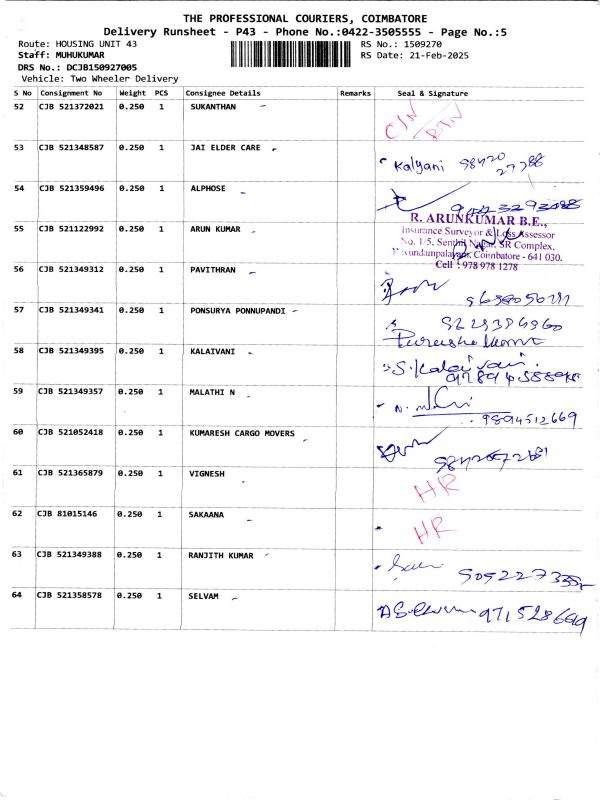 THE PROFESSIONAL COURIERS, COIMBATORE
Delivery Runsheet - P43 - Phone No.:0422-3505555 - Page No.:5
Route: HOUSING UNIT 43 RS No.: 1509270
Staff: MUHUKUMAR RS Date: 21-Feb-2025
DRS No.: DCJB150927005
Vehicle: Two Wheeler Delivery
S No Consignment No Weight PCS Consignee Details Remarks Seal & Signature
52 CJB 521372021 0.250 1 SUKANTHAN
53 CJB 521348587 0.250 1 JAI ELDER CARE Kalyani 98420 27788
54 CJB 521359496 0.250 1 ALPHOSE
R. ARUNKUMAR B.E.,
55 CJB 521122992 0.250 1 ARUN KUMAR Insurance Surveyor & Loss Assessor
No. 1/5, Senthil Nagar, SR Complex,
Coimbatore - 641 030.
Cell : 978 978 1278
56 CJB 521349312 0.250 1 PAVITHRAN
57 CJB 521349341 0.250 1 PONSURYA PONNUPANDI
58 CJB 521349395 0.250 1 KALAIVANI S. Kalaivani
59 CJB 521349357 0.250 1 MALATHI N 9894512669
60 CJB 521052418 0.250 1 KUMARESH CARGO MOVERS
61 CJB 521365879 0.250 1 VIGNESH HR
62 CJB 81015146 0.250 1 SAKAANA HR
63 CJB 521349388 0.250 1 RANJITH KUMAR
64 CJB 521358578 0.250 1 SELVAM